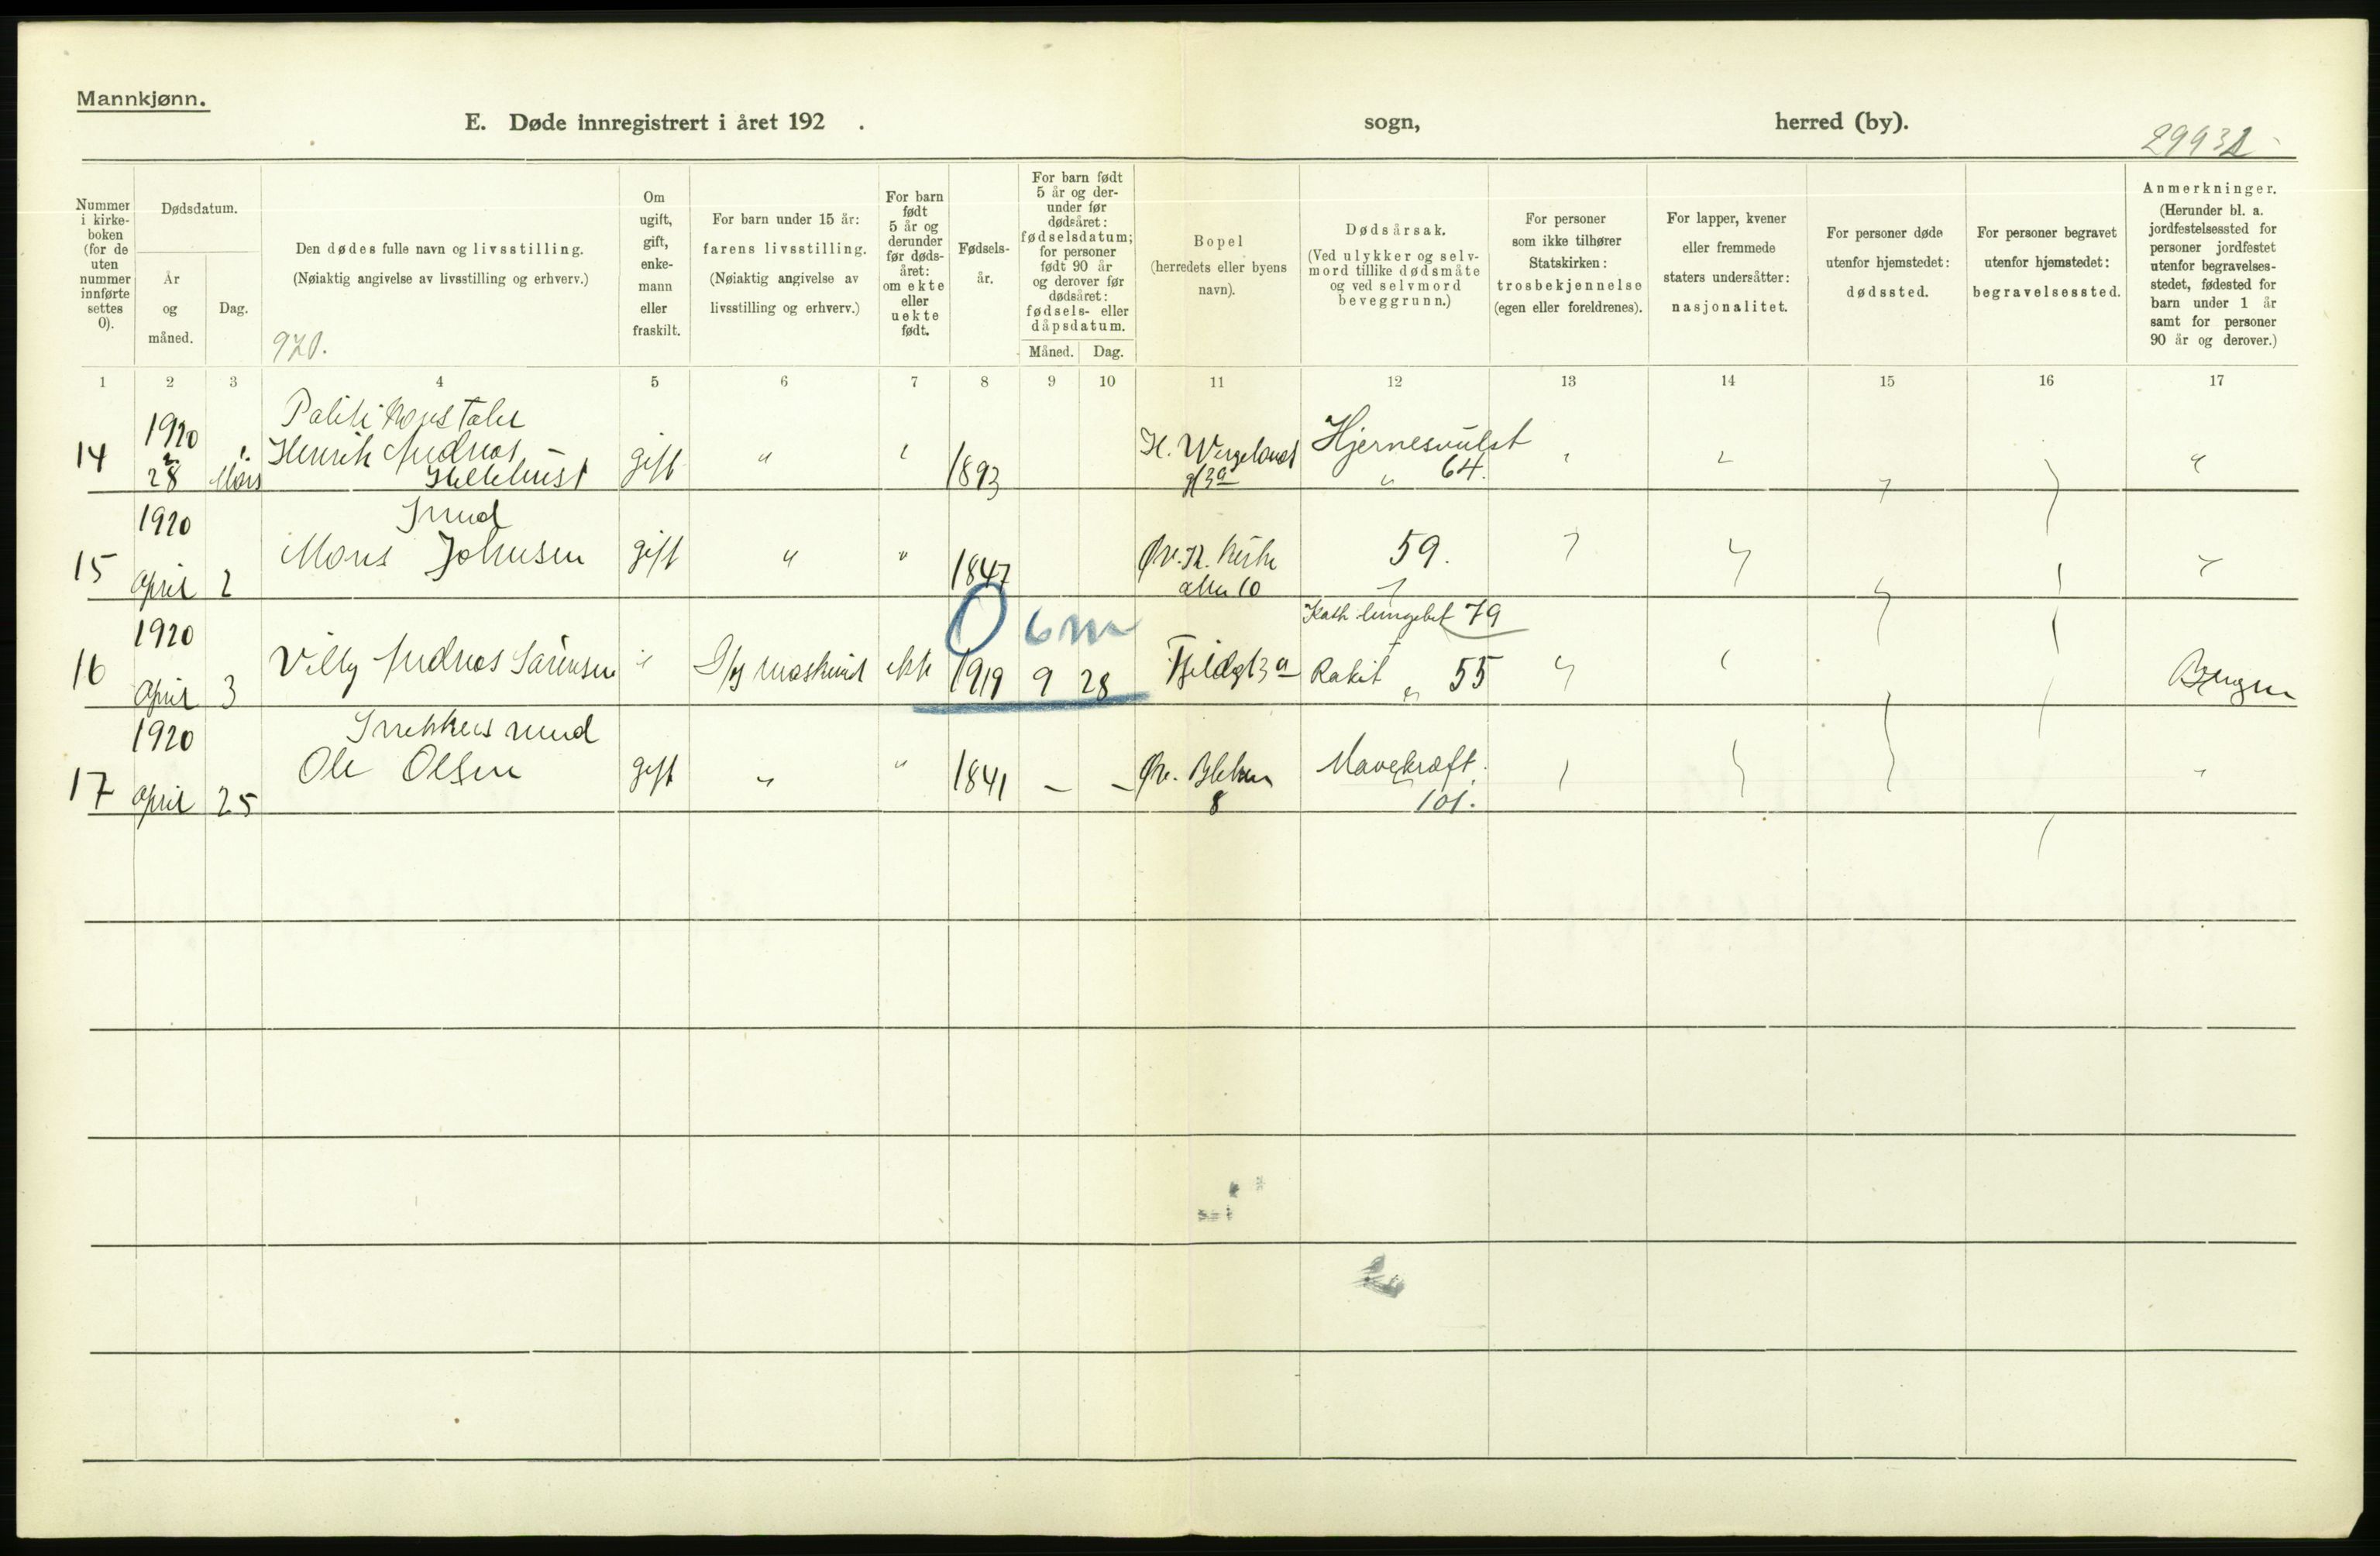 Mannkjønn.
E. Døde innregistrert i året 192 . sogn, herred (by).
2993
Nummer i kirke- boken (for de uten nummer innførte settes 0).
Dødsdatum.
År og måned.
Dag.
Den dødes fulle navn og livsstilling.
(Nøiaktig angivelse av livsstilling og erhverv.)
920.
Om ugift, gift, enke- mann eller fraskilt.
For barn under 15 år:
farens livsstilling.
(Nøiaktig angivelse av livsstilling og erhverv.)
For barn født 5 år og derunder før døds- året: om ekte eller uekte født.
Fødsels- år.
For barn født 5 år og der- under før dødsåret: fødselsdatum; for personer født 90 år og derover før dødsåret: fødsels- eller dåpsdatum.
Måned. Dag.
Bopel
(herredets eller byens navn).
Dødsårsak.
(Ved ulykker og selv- mord tillike dødsmåte og ved selvmord beveggrunn.)
For personer som ikke tilhører Statskirken: trosbekjennelse (egen eller foreldrenes).
For lapper, kvener eller fremmede staters undersåtter: nasjonalitet.
For personer døde utenfor hjemstedet: dødssted.
For personer begravet utenfor hjemstedet: begravelsessted.
Anmerkninger.
(Herunder bl. a. jordfestelsessted for personer jordfestet utenfor begravelses- stedet, fødested for barn under 1 år samt for personer 90 år og derover.)
1 2 3 4 5 6 7 8 9 10 11 12 13 14 15 16 17
Politikonstabel
14 1920 28 Mars Henrik Andreas gift " 1893 H. Wergelands Hjernesvulst
gt 3a " 64.
1920
15 April 2 Mons Johnsen gift " " 1847 59. "
alle 10
0 6 m
Kath lungebet 79
1920
16 April 3 Villy Andreas Sørensen " maskinist ekte 1919 9 28 Rakit " 55 Bergen
Snekkersvend
1920
17 April 25 Ole Olsen gift " " 1841 – – Øv. Bleken Mavekræft. "
8 101.